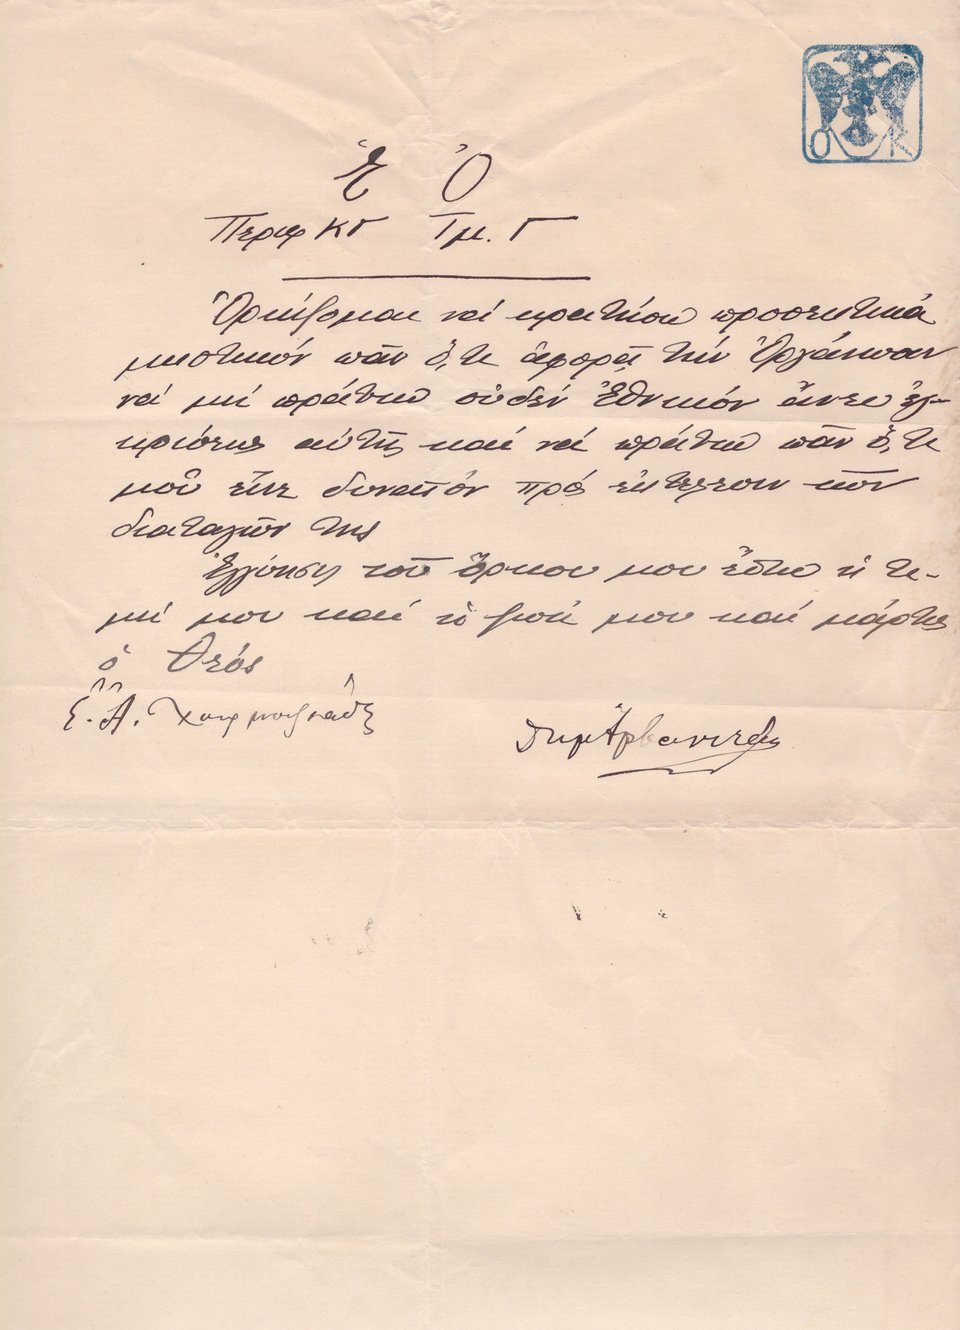 Ο Κ
Ἐ Ὀ
Περιφ ΚΓ Τμ. Γ
Ὁρκίζομαι νά κρατήσω προσεκτικά
μυστικόν πᾶν ὅ,τι ἀφορᾷ τήν Ὀργάνωσιν
νά μή πράττω οὐδέν Ἐθνικόν ἄνευ ἐγ-
κρίσεως αὐτῆς καί νά πράττω πᾶν ὅ,τι
μοῦ εἶνε δυνατόν πρός ἐκτέλεσιν τῶν
διαταγῶν της
Ἐγγύησις τοῦ ὅρκου μου ἔστω ἡ τι-
μή μου καί ἡ ζωή μου καί μάρτυς
ὁ Θεός
Ε. Α.
Δημ Ἀρβανιτίδης